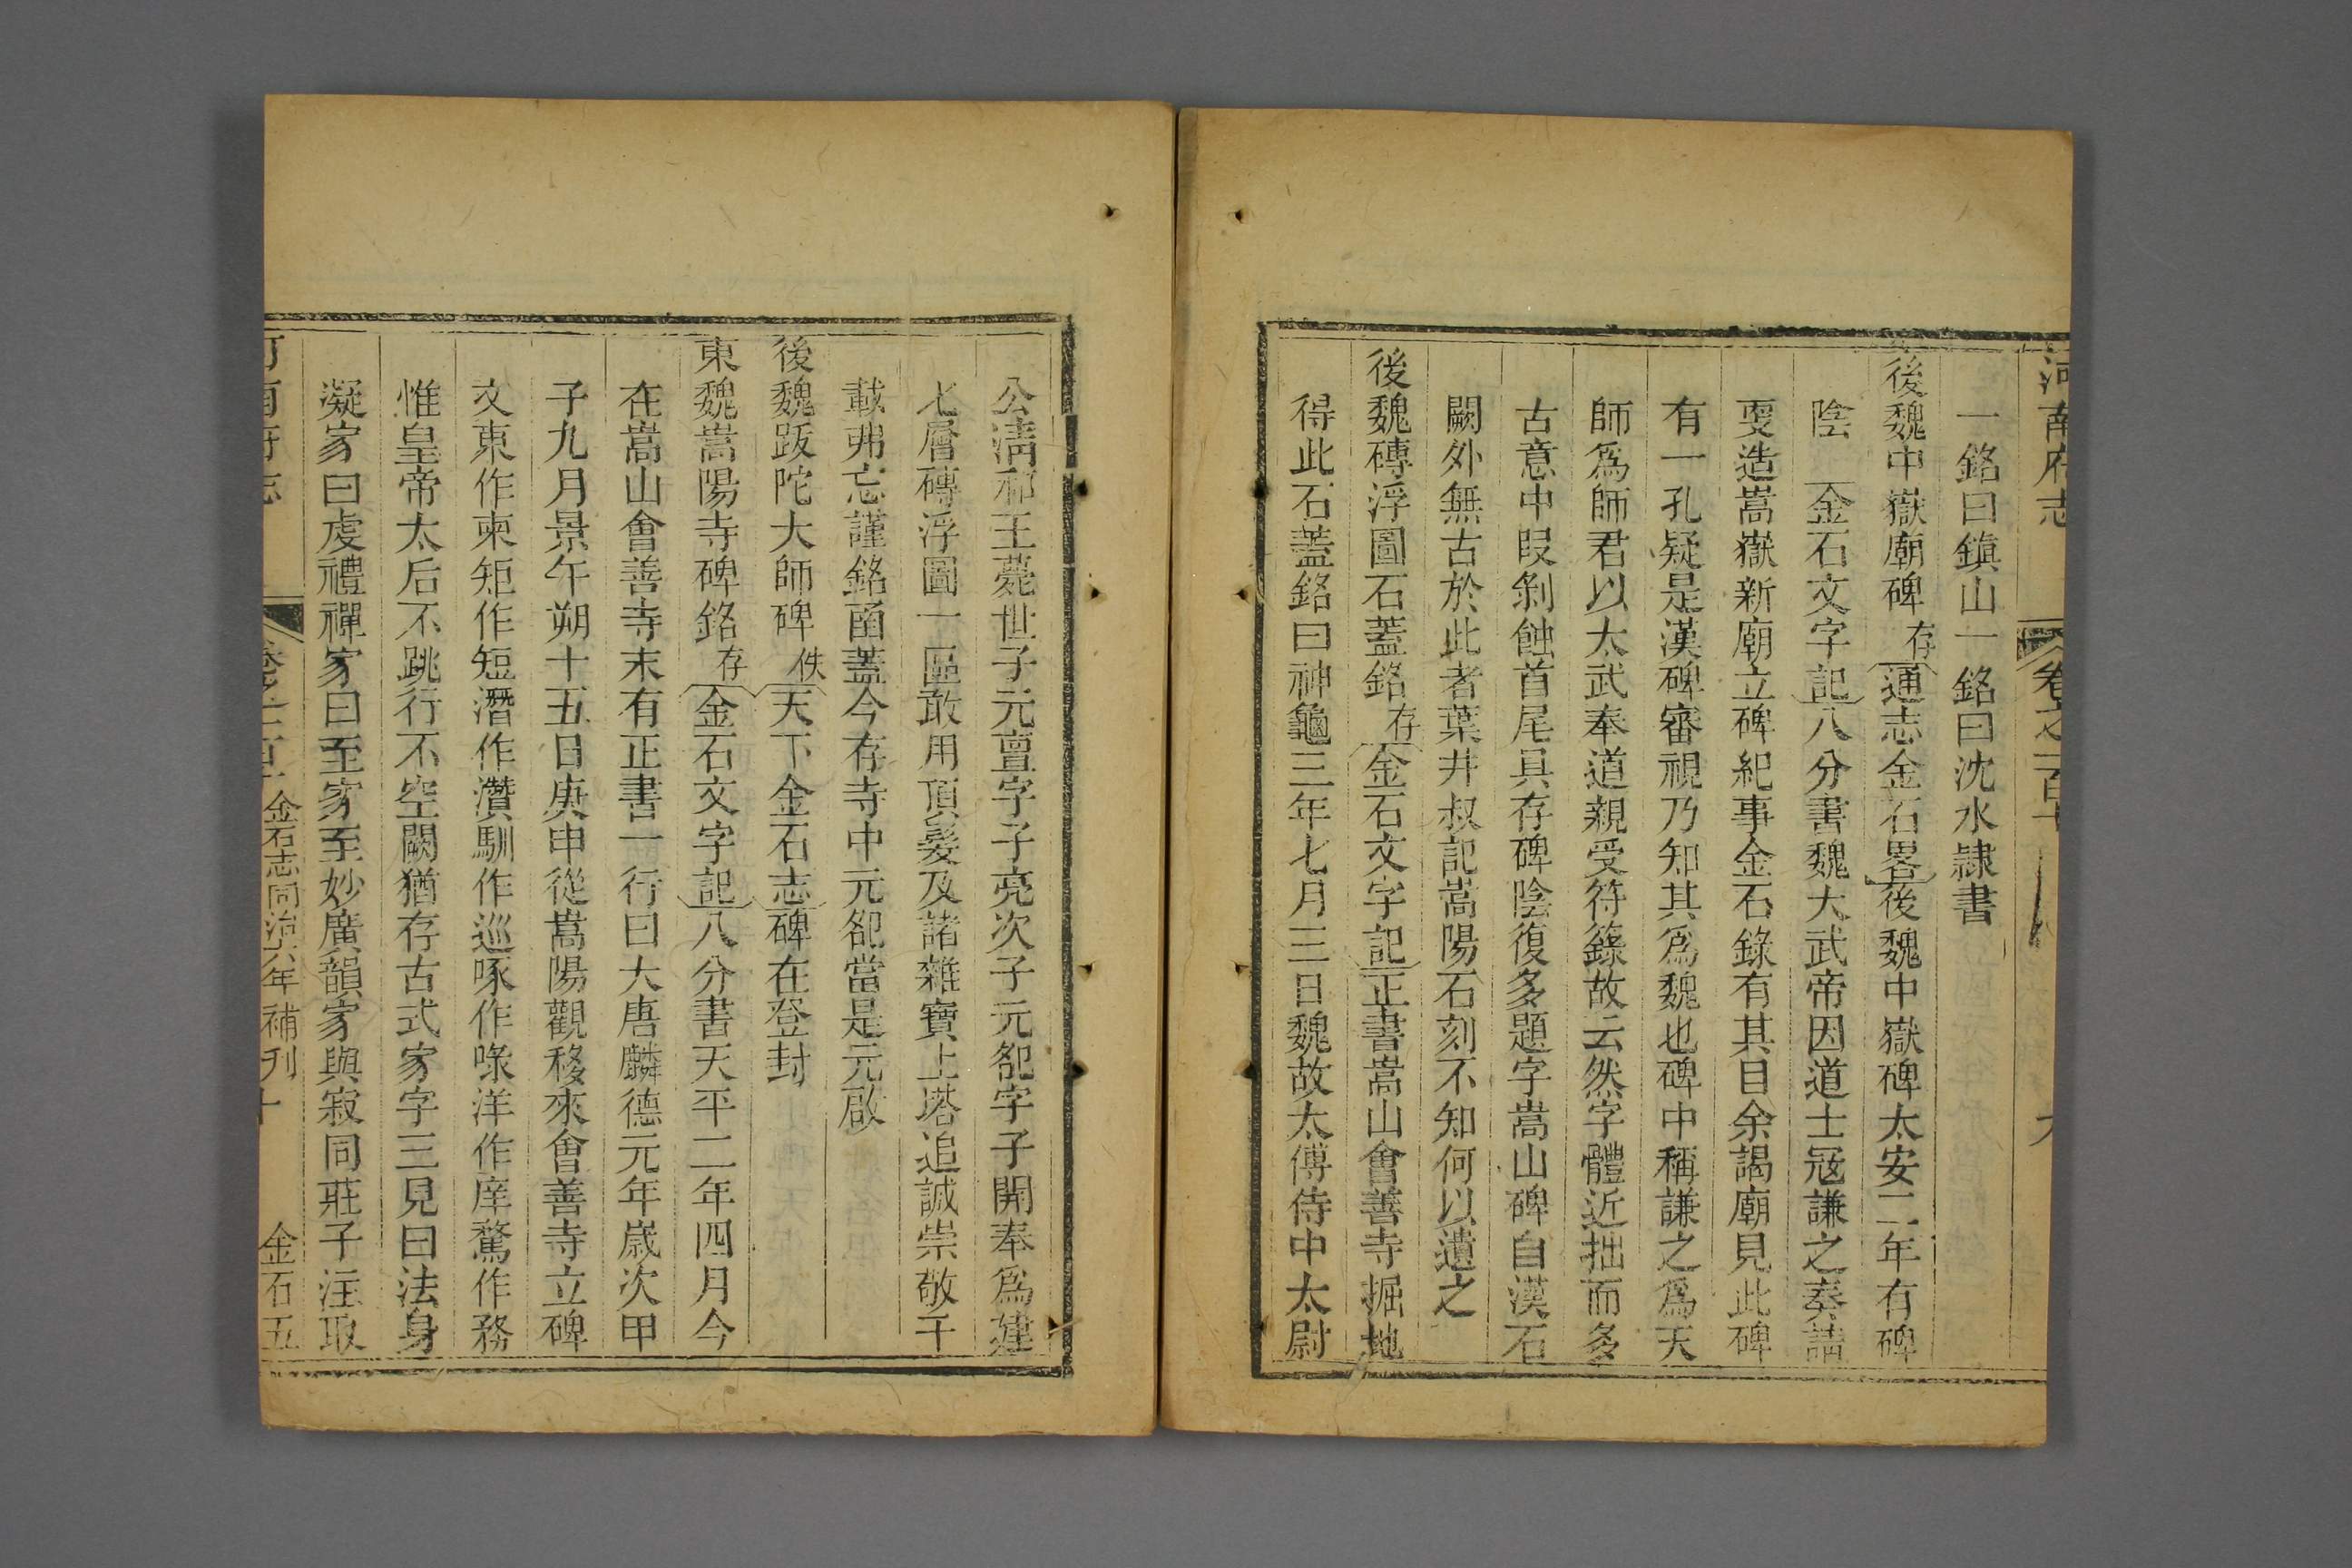 河南府志 卷之一百十 九
一銘曰鎮山一銘曰沈水隷書
後魏中嶽廟碑 存 通志金石畧後魏中嶽碑太安二年有碑
陰 金石文字記八分書魏大武帝因道士冦謙之奏請
更造嵩嶽新廟立碑紀事金石錄有其目余謁廟見此碑
有一孔疑是漢碑審視乃知其爲魏也碑中稱謙之爲天
師爲師君以太武奉道親受符籙故云然字體近拙而多
古意中叚剝蝕首尾具存碑陰復多題字嵩山碑自漢石
闕外無古於此者葉井叔記嵩陽石刻不知何以遺之
後魏磚浮圖石蓋銘 存 金石文字記正書嵩山會善寺掘地
得此石蓋銘曰神龜三年七月三日魏故太傅侍中太尉
公淸和王薨世子元亶字子亮次子元㔾字子開奉爲建
七層磚浮圖一區敢用頂髮及諸雜寶上塔追誠崇敬千
載弗忘謹銘函蓋今存寺中元㔾當是元啟
後魏跋陀大師碑 佚 天下金石志碑在登封
東魏嵩陽寺碑銘 存 金石文字記八分書天平二年四月今
在嵩山會善寺末有正書一行曰大唐麟德元年歲次甲
子九月景午朔十五日庚申從嵩陽觀移來會善寺立碑
文東作柬矩作短潛作灒馴作巡啄作㖨洋作庠騖作務
惟皇帝太后不跳行不空闕猶存古式家字三見曰法身
凝家曰虔禮禪家曰至家至妙廣韻家與寂同莊子注取
河南府志 卷之一百十 金石志同治六年補刊 十 金石五